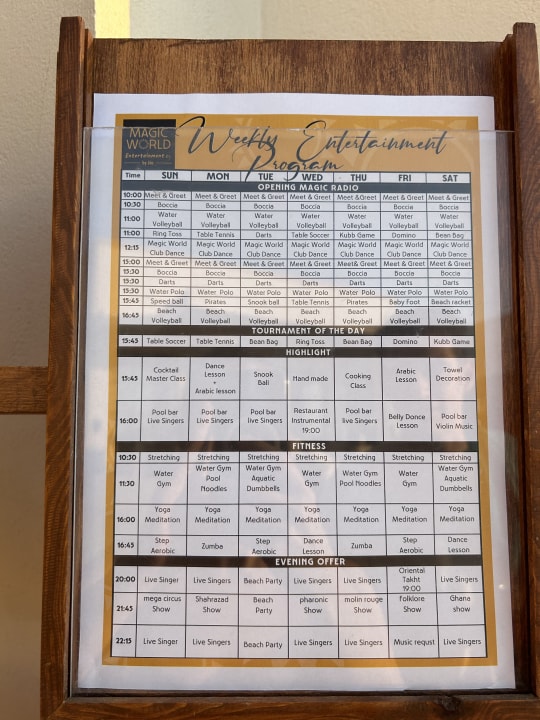 MAGIC
WORLD
Entertainment
Weekly Entertainment
Program
Time SUN MON TUE WED THU FRI SAT
OPENING MAGIC RADIO
10:00 Meet & Greet Meet & Greet Meet & Greet Meet & Greet Meet &Greet Meet & Greet Meet & Greet
10:30 Boccia Boccia Boccia Boccia Boccia Boccia Boccia
11:00 Water Volleyball Water Volleyball Water Volleyball Water Volleyball Water Volleyball Water Volleyball Water Volleyball
11:00 Ring Toss Table Tennis Darts Table Soccer Kubb Game Domino Bean Bag
12:15 Magic World Club Dance Magic World Club Dance Magic World Club Dance Magic World Club Dance Magic World Club Dance Magic World Club Dance Magic World Club Dance
15:00 Meet & Greet Meet & Greet Meet & Greet Meet & Greet Meet & Greet Meet & Greet Meet & Greet
15:30 Boccia Boccia Boccia Boccia Boccia Boccia Boccia
15:30 Darts Darts Darts Darts Darts Darts Darts
15:30 Water Polo Water Polo Water Polo Water Polo Water Polo Water Polo Water Polo
15:45 Speed ball Pirates Snook ball Table Tennis Pirates Baby Foot Beach racket
16:45 Beach Volleyball Beach Volleyball Beach Volleyball Beach Volleyball Beach Volleyball Beach Volleyball Beach Volleyball
TOURNAMENT OF THE DAY
15:45 Table Soccer Table Tennis Bean Bag Ring Toss Bean Bag Domino Kubb Game
HIGHLIGHT
15:45 Cocktail Master Class Dance Lesson + Arabic lesson Snook Ball Hand made Cooking Class Arabic Lesson Towel Decoration
16:00 Pool bar Live Singers Pool bar Live Singers Pool bar Live Singers Restaurant Instrumental 19:00 Pool bar live Singers Belly Donce Lesson Pool bar Violin Music
FITNESS
10:30 Stretching Stretching Stretching Stretching Stretching Stretching Stretching
11:30 Water Gym Water Gym Pool Noodles Water Gym Aquatic Dumbbells Water Gym Water Gym Pool Noodles Water Gym Water Gym Aquatic Dumbells
16:00 Yoga Meditation Yoga Meditation Yoga Meditation Yoga Meditation Yoga Meditation Yoga Meditation Yoga Meditation
16:45 Step Aerobic Zumba Step Aerobic Dance Lesson Zumba Step Aerobic Dance Lesson
EVENING OFFER
20:00 Live Singer Live Singers Beach Party Live Singers Live Singers Oriental Takht 19:00 Live Singers
21:45 mega circus Show Shahrazad Show Beach Party pharonic Show molin rouge Show Folklore Show Ghana show
22:15 Live Singer Live Singers Beach Party Live Singers Live Singers Music requst Live Singers